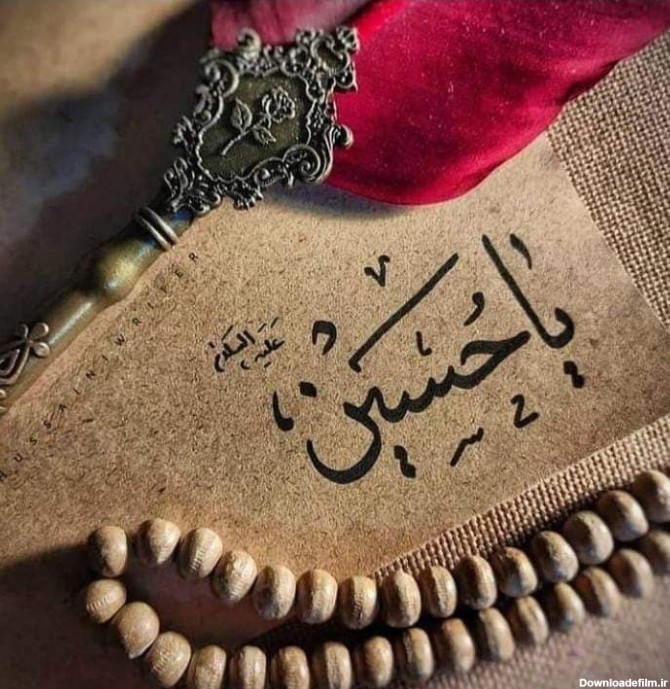 يا حُسَين
عَلَيهِ السَلام
HUSSAINIWRITER
Downloadefilm.ir